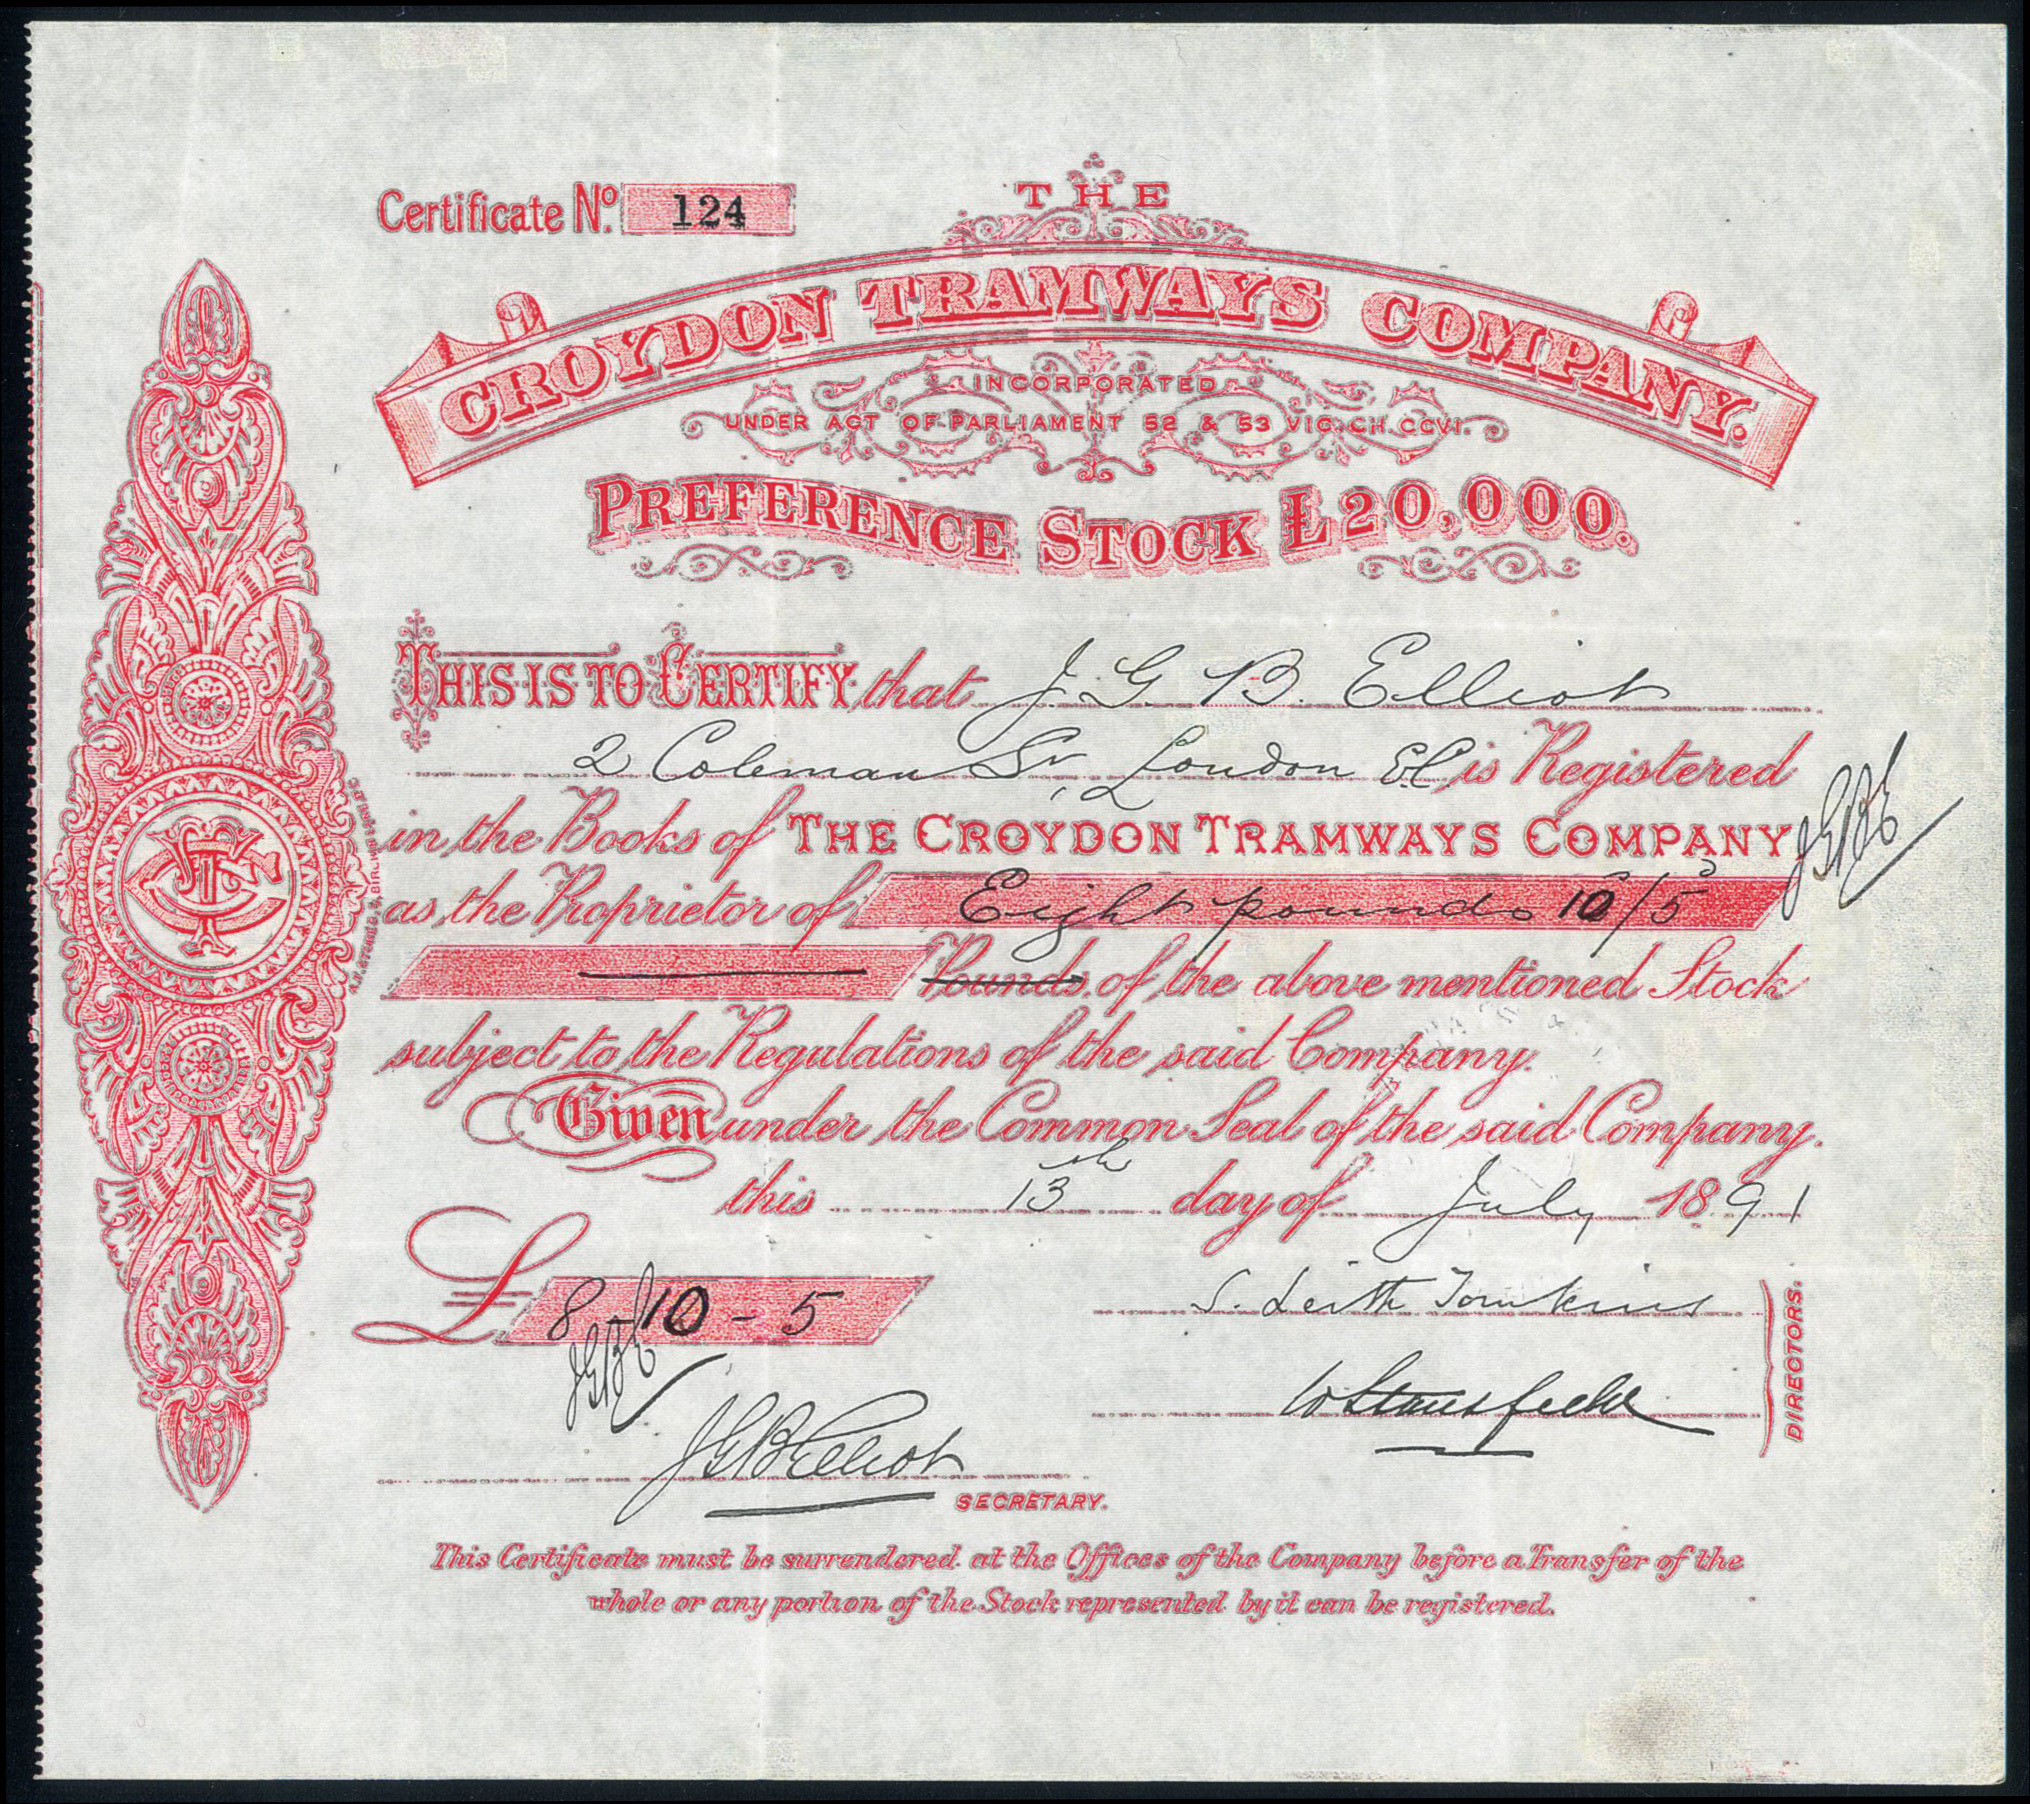 Certificate No. 124
THE
CROYDON TRAMWAYS COMPANY.
INCORPORATED
UNDER ACT OF PARLIAMENT 52 & 53 VIC. CH. CCVI.
PREFERENCE STOCK £20,000.
THIS IS TO CERTIFY that J. G. B. Elliot
2 Coleman St, London E.C. is Registered
in the Books of THE CROYDON TRAMWAYS COMPANY
JGBE
as the Proprietor of Eight pounds 10/5
Pounds of the above mentioned Stock
subject to the Regulations of the said Company.
Given under the Common Seal of the said Company.
this 13th day of July 1891
£ 8-10-5
JGBE
S. Leith Tomkins
W Stansfield
DIRECTORS.
JGB Elliot
SECRETARY.
This Certificate must be surrendered at the Offices of the Company before a Transfer of the
whole or any portion of the Stock represented by it can be registered.